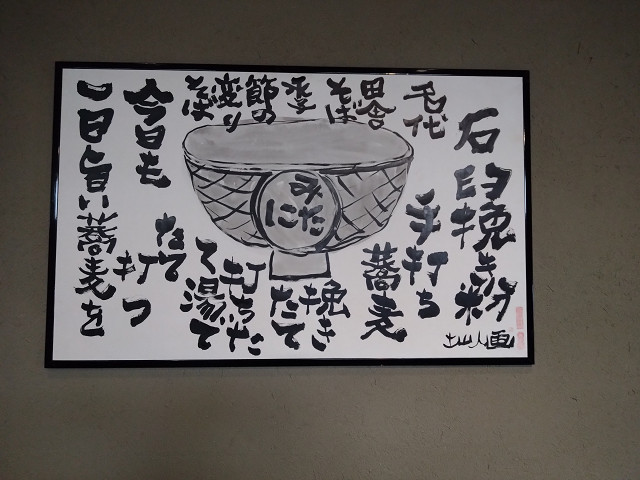 石臼挽き粉
手打ち
蕎麦
名代
田舎
そば
季
節の
変り
そば
みた
に
挽き
たて
打ちた
て湯で
たて
今日も
一日旨い蕎麦を
打つ
土山人画